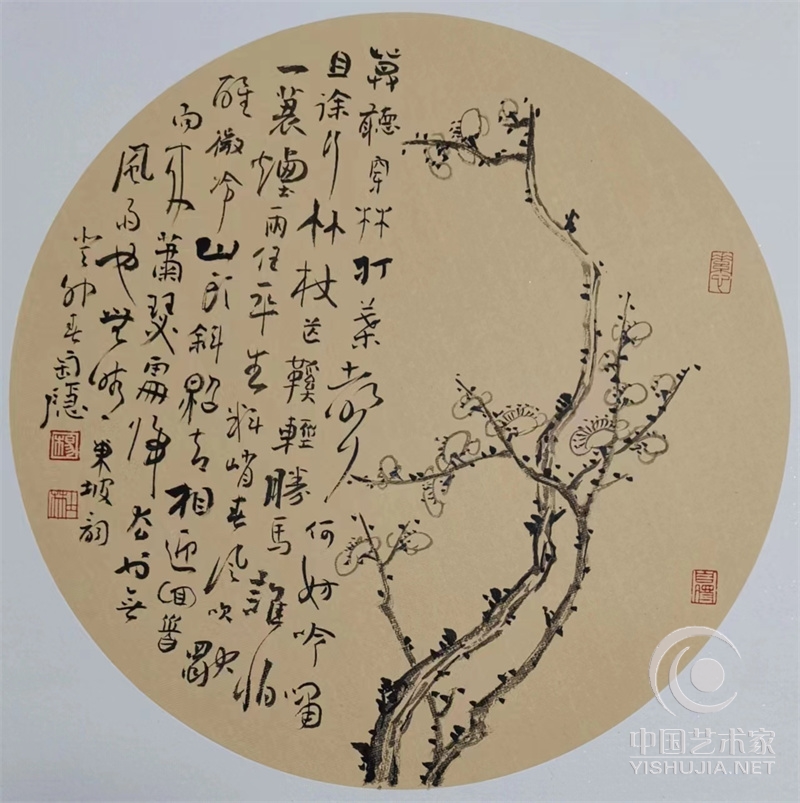 莫聽穿林打葉聲何妨吟嘯
且徐行竹杖芒鞵輕勝馬誰怕
一蓑煙雨任平生料峭春风吹酒
醒微冷山头斜照却相迎回首
向来蕭瑟處歸去也无
風雨也無晴東坡詞
癸卯春隱
中国艺术家
YISHUJIA.NET